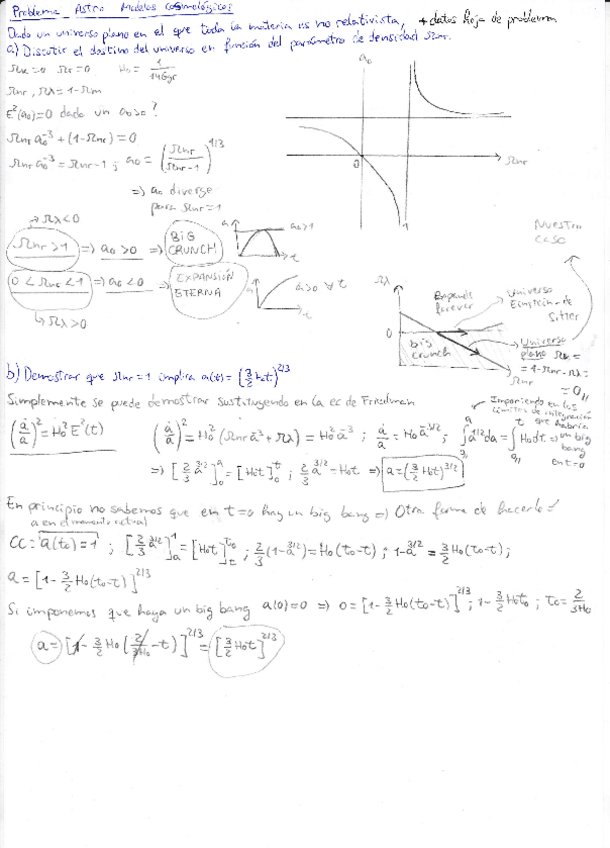 Problema Astro Modelos cosmológicos
Dado un universo plano en el que toda la materia es no relativista, + datos hoja de problema
a) Discutir el destino del universo en función del parámetro de densidad Ωnr.
Ωk=0 Ωr=0 H₀ = 1/14Gyr
Ωnr, Ωλ=1-Ωm
E²(a₀)=0 dado un a₀>0?
Ωnr a₀⁻³ + (1-Ωnr) = 0
Ωnr a₀⁻³ = Ωnr-1 ; a₀ = (Ωnr/(Ωnr-1))^(1/3)
⇒ a₀ diverge
para Ωnr=1
a₀
0
1
Ωnr
→ Ωλ<0
Ωnr>1 ⇒ a₀>0 ⇒ BIG CRUNCH
0<Ωnr<1 ⇒ a₀<0 ⇒ EXPANSIÓN ETERNA
a>0 ∀t
↳ Ωλ>0
Nuestro
caso
Ωλ
0
Expands
forever
big
crunch
Universo
Einstein-de
Sitter
Universo
plano Ωk=
=1-Ωnr-Ωλ=
=0
Ωnr
b) Demostrar que Ωnr=1 implica a(t)=(3/2 H₀t)^(2/3)
Simplemente se puede demostrar sustituyendo en la ec de Friedman
(ȧ/a)²=H₀²E²(t) (ȧ/a)²=H₀²(Ωnr a⁻³+Ωλ)=H₀²a⁻³ ; ȧ/a=H₀a^(-3/2) ; ∫a^(1/2)da=∫H₀dt ⇒
Imponiendo en los
límites de integración
que habría
un big
bang
en t=0
⇒ [2/3 a^(3/2)]₀^a=[H₀t]₀^t ; 2/3 a^(3/2)=H₀t ⇒ a=(3/2 H₀t)^(3/2)
En principio no sabemos que en t=0 hay un big bang ⇒ Otra forma de hacerlo =
a en el momento actual
CC= a(t₀)=1 ; [2/3 a^(3/2)]_a^1=[H₀t]_t^t₀ ; 2/3(1-a^(3/2))=H₀(t₀-t) ; 1-a^(3/2)=3/2 H₀(t₀-t) ;
a=[1-3/2 H₀(t₀-t)]^(2/3)
Si imponemos que haya un big bang a(0)=0 ⇒ 0=[1-3/2 H₀(t₀-t)]^(2/3) ; 1-3/2 H₀t₀ ; t₀=2/3H₀
a=[1-3/2 H₀(2/3H₀-t)]^(2/3)=[3/2 H₀t]^(2/3)